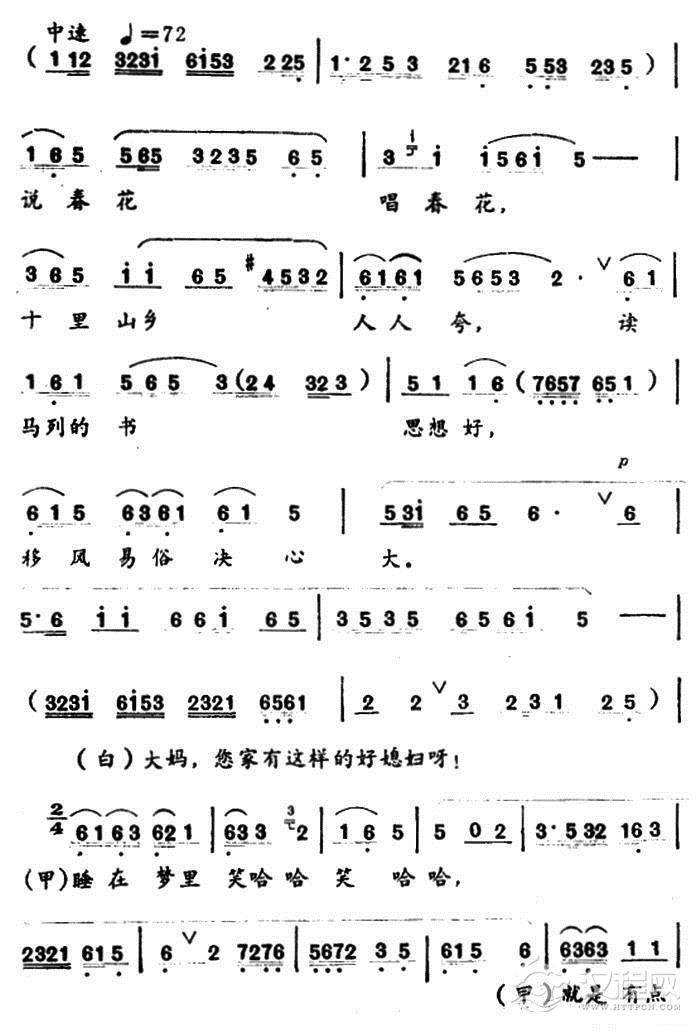 中速 ♩=72
(1 12 323i 6i53 2 25 | 1·253 216 553 235 ) |
165 565 3235 65 | 3 i i56i 5 — |
说春花 唱春花,
365 ii 65 #4532 | 6161 5653 2· ∨ 61 |
十里山乡 人人夸, 读
161 565 3(24 323) | 51 16 (7657 651) |
马列的书 思想好,
p
615 6361 61 5 | 53i 65 6· ∨ 6
移风易俗决心 大。
5·6 ii 66i 65 | 3535 656i 5 — |
(323i 6i53 2321 6561 | 2 2 ∨ 3 231 25 ) |
(白)大妈,您家有这样的好媳妇呀!
2/4 6163 621 | 633 3 2 | 165 | 5 02 | 3·532 163
(甲)睡在梦里笑哈哈笑哈哈,
2321 615 | 6 ∨ 2 7276 | 5672 35 | 615 6 | 6363 11 |
(甲)就是有点
汉程网
HTTPCN.COM